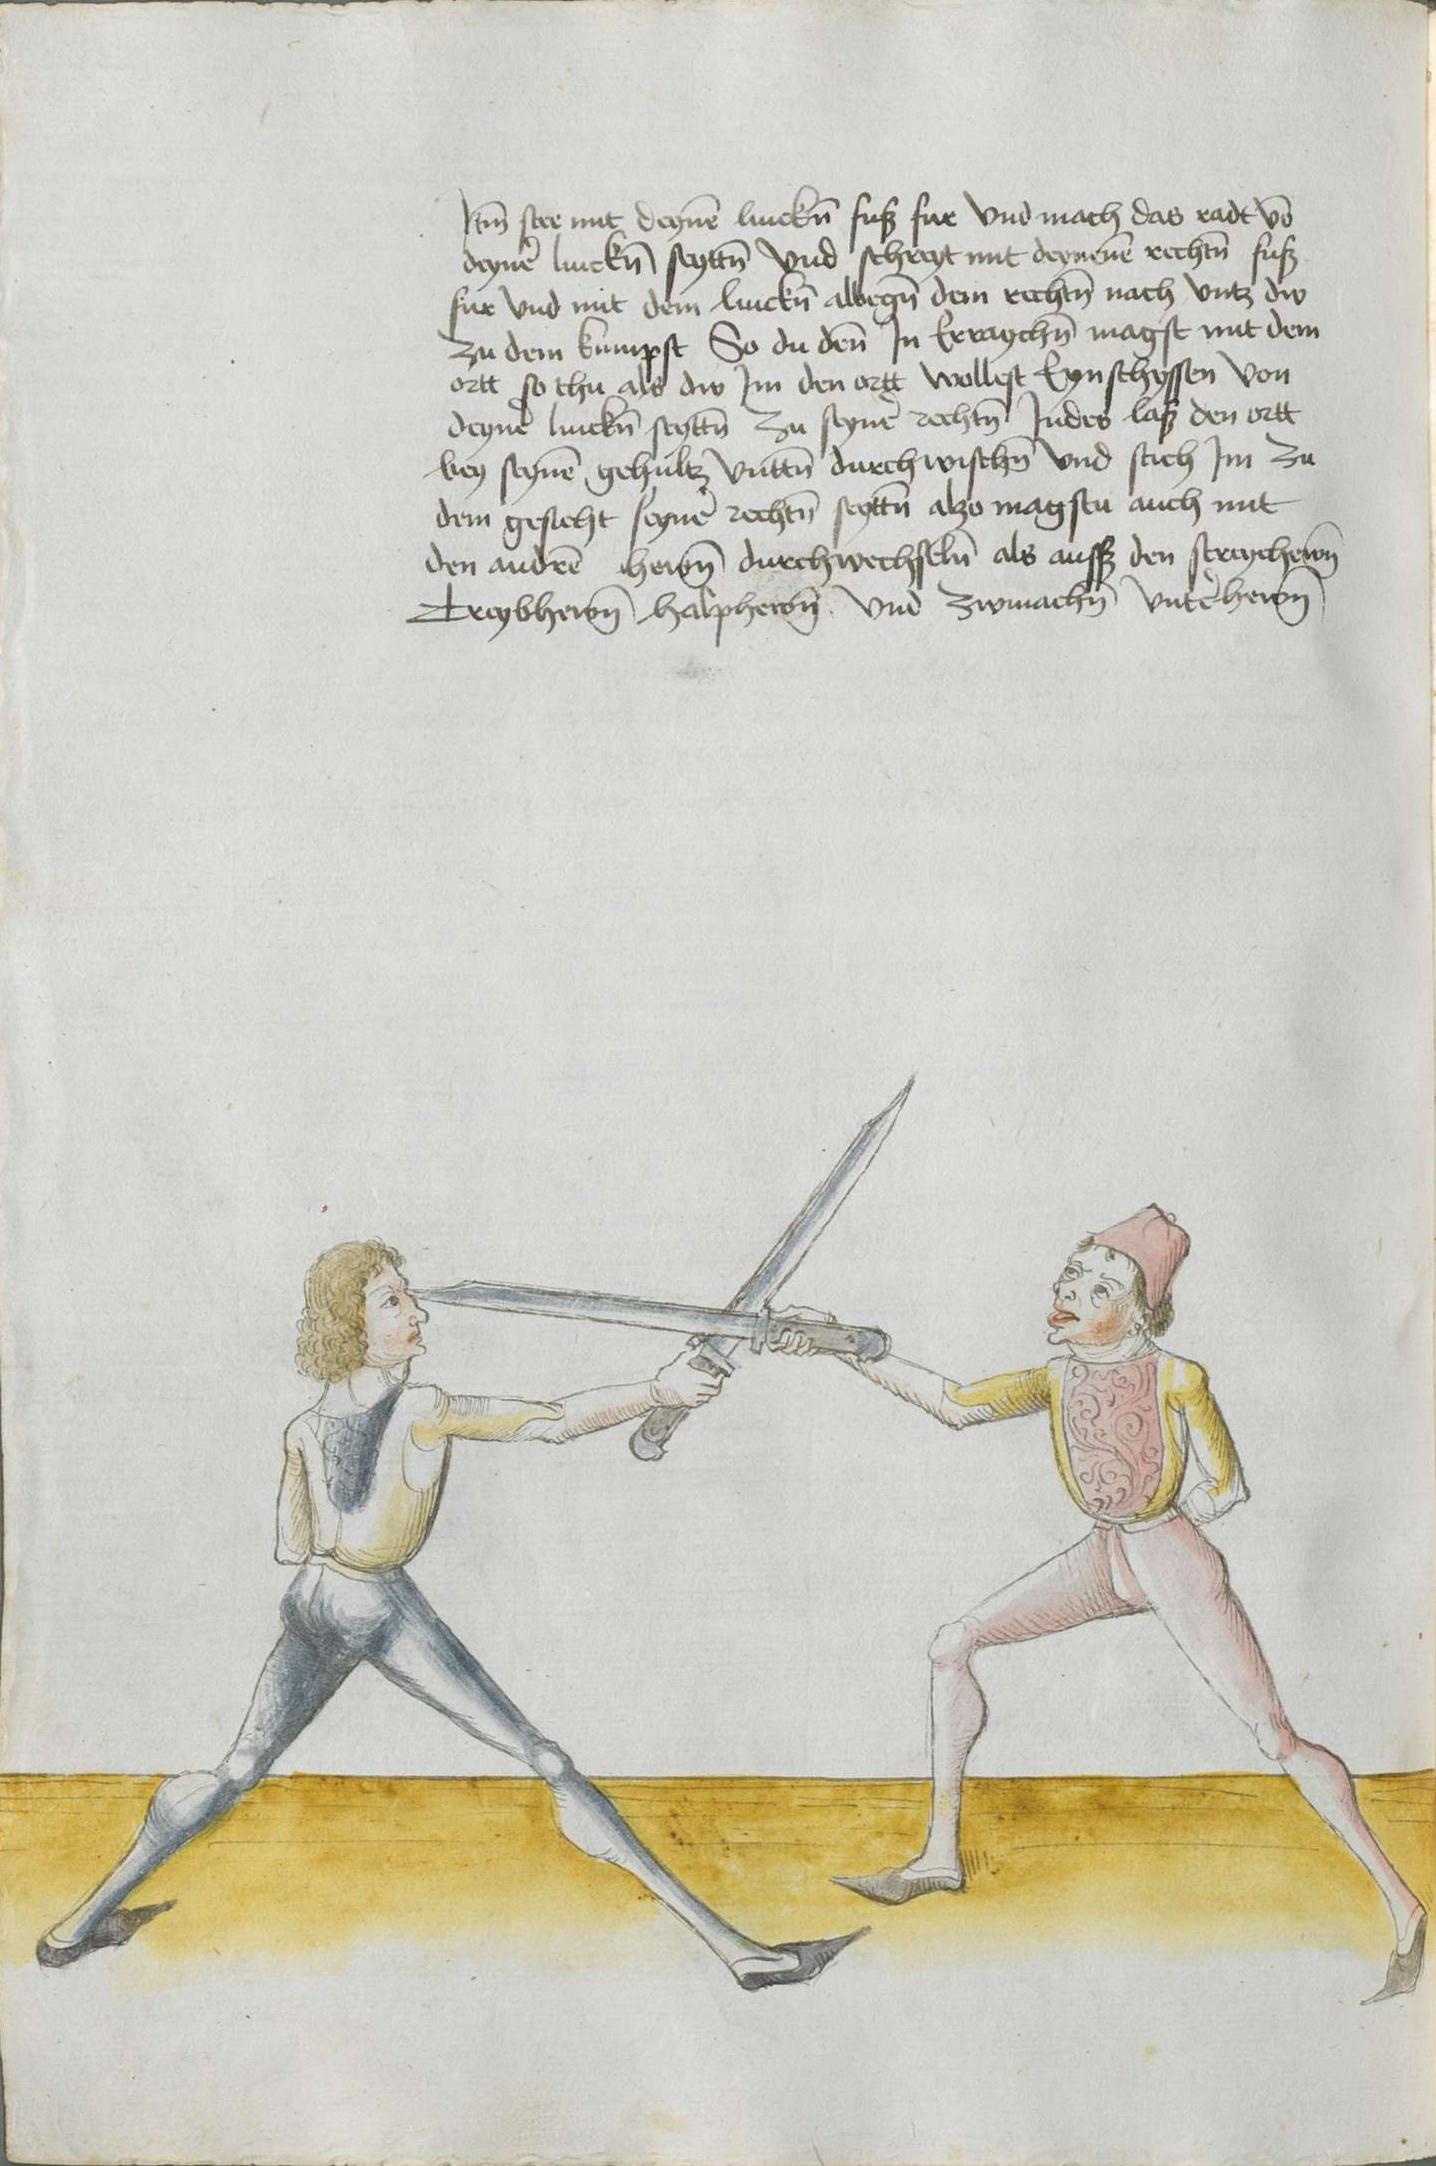 Itm̄ stee mit deynē linckn̄ fuß fur Vnd mach das radt vō
deynē linckn̄ seyttn̄ Vnd schreyt mit deynenē rechtn̄ fuß
fur Vnd mit dem linckn̄ albegn̄ dem rechtn̄ nach Vntz dw
Zu dem kumpst So du den̄ In Erraychn̄ magst mit dem
ortt so thu als dw Im den ortt wollest Eynschyssen Von
deynē linckn̄ seyttn̄ Zu seynē rechtn̄ Indes laß den ortt
bey seynē gehultz Vnttn̄ durchwischn̄ Vnd stich Im Zu
dem gesicht seynē rechtn̄ seyttn̄ alzo magstu auch mit
den andrē hewn̄ durchwechseln̄ als auß den straychewn̄
Treybhewn̄ halphewn̄ Vnd Zwmachn̄ Vntēhewn̄